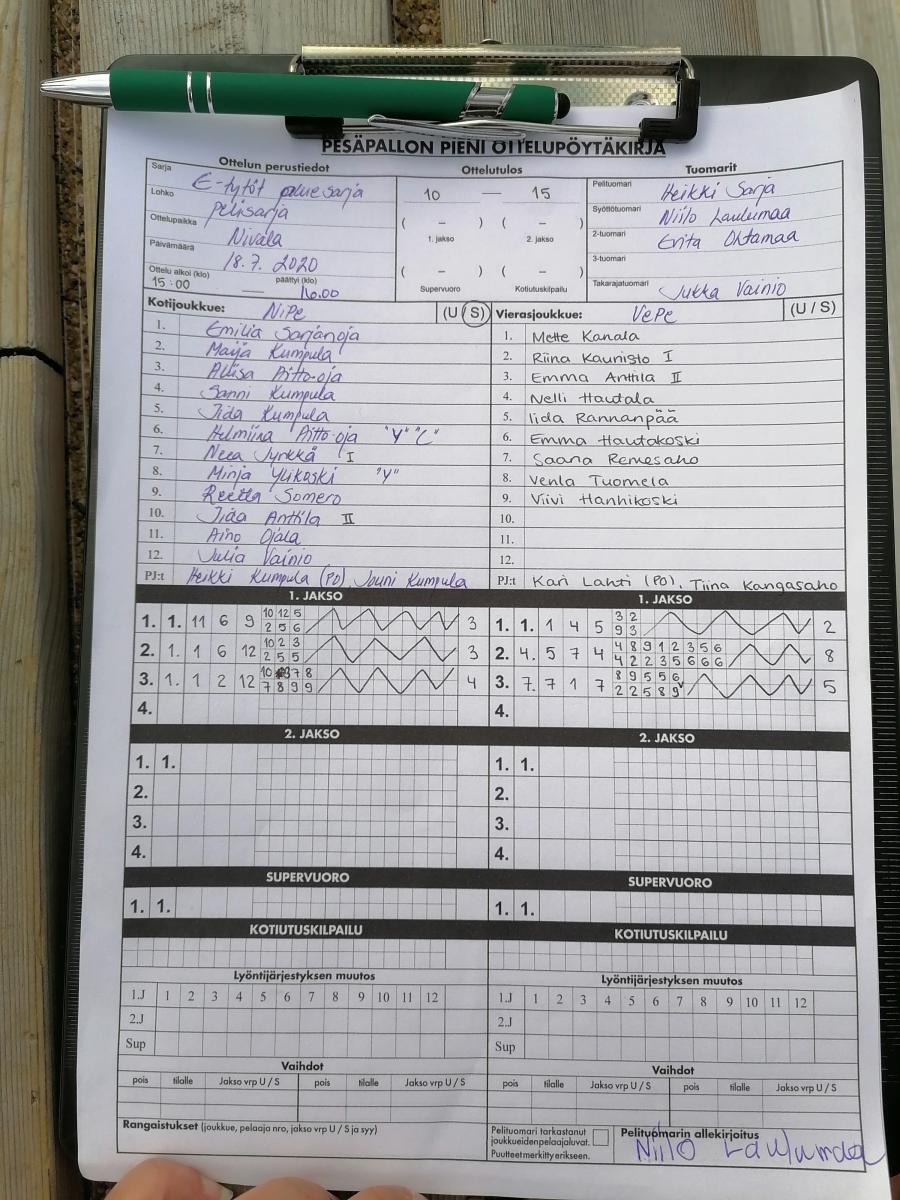 PESÄPALLON PIENI OTTELUPÖYTÄKIRJA
Ottelun perustiedot
Sarja E-tytöt aluesarja
Lohko pelisarja
Ottelupaikka Nivala
Päivämäärä 18.7. 2020
Ottelu alkoi (klo) 15:00 — päättyi (klo) 16.00
Ottelutulos
10 — 15
( – ) ( – )
1. jakso 2. jakso
( – ) ( – )
Supervuoro Kotiutuskilpailu
Tuomarit
Pelituomari Heikki Sarja
Syöttötuomari Niilo Laulumaa
2-tuomari Erita Ohtamaa
3-tuomari
Takarajatuomari Jukka Vainio
Kotijoukkue: NiPe (U / S)
1. Emilia Sarjanoja
2. Maija Kumpula
3. Aliisa Aitto-oja
4. Sanni Kumpula
5. Iida Kumpula
6. Helmiina Aitto-oja "Y" "C"
7. Neea Jyrkkä I
8. Minja Ylikoski "Y"
9. Reetta Somero
10. Iida Anttila II
11. Aino Ojala
12. Julia Vainio
PJ:t Heikki Kumpula (PO), Jouni Kumpula
Vierasjoukkue: VePe (U / S)
1. Mette Kanala
2. Riina Kaunisto I
3. Emma Anttila II
4. Nelli Hautala
5. Iida Rannanpää
6. Emma Hautakoski
7. Saana Remesaho
8. Venla Tuomela
9. Viivi Hanhikoski
10.
11.
12.
PJ:t Kari Lahti (PO), Tiina Kangasaho
1. JAKSO
1. 1. 11 6 9 10 12 5 3
2 5 6
2. 1. 1 6 12 10 2 3 3
2 5 5
3. 1. 1 2 12 10 3 7 8 4
7 8 9 9
4.
1. JAKSO
1. 1. 1 4 5 3 2 2
9 3
2. 4. 5 7 4 4 8 9 1 2 3 5 6 8
4 2 2 3 5 6 6 6
3. 7. 7 1 7 8 9 5 5 6 5
2 2 5 8 9
4.
2. JAKSO
1. 1.
2.
3.
4.
2. JAKSO
1. 1.
2.
3.
4.
SUPERVUORO
1. 1.
SUPERVUORO
1. 1.
KOTIUTUSKILPAILU
KOTIUTUSKILPAILU
Lyöntijärjestyksen muutos
1.J 1 2 3 4 5 6 7 8 9 10 11 12
2.J
Sup
Lyöntijärjestyksen muutos
1.J 1 2 3 4 5 6 7 8 9 10 11 12
2.J
Sup
Vaihdot
pois tilalle Jakso vrp U / S pois tilalle Jakso vrp U / S
Vaihdot
pois tilalle Jakso vrp U / S pois tilalle Jakso vrp U / S
Rangaistukset (joukkue, pelaaja nro, jakso vrp U / S ja syy)
Pelituomari tarkastanut
joukkueidenpelaajaluvat.
Puutteetmerkittyerikseen.
Pelituomarin allekirjoitus
Niilo Laulumaa